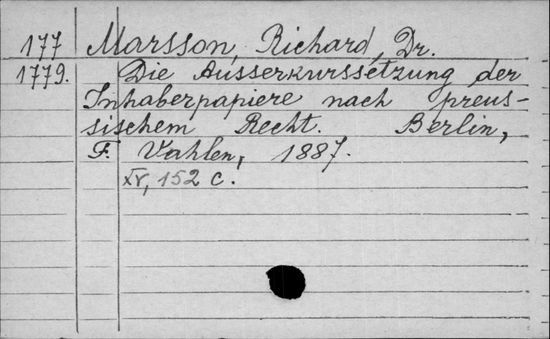 177 Marsson, Richard, Dr.
1779. Die Ausserkurssetzung der
Inhaberpapiere nach preus-
sischem Recht. Berlin,
F. Vahlen, 1887.
XV, 152 c.